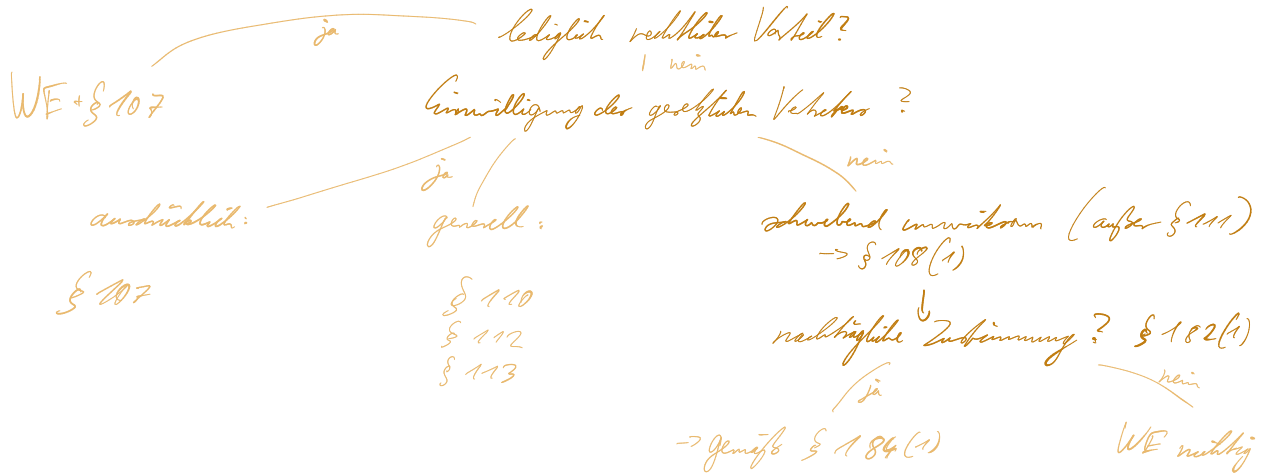 lediglich rechtlicher Vorteil?
ja
nein
WE + § 107
Einwilligung des gesetzlichen Vertreters ?
ja
nein
ausdrücklich:
generell :
schwebend unwirksam (außer § 111)
-> § 108 (1)
§ 107
§ 110
§ 112
§ 113
nachträgliche Zustimmung ? § 182(1)
ja
nein
-> gemäß § 184(1)
WE nichtig